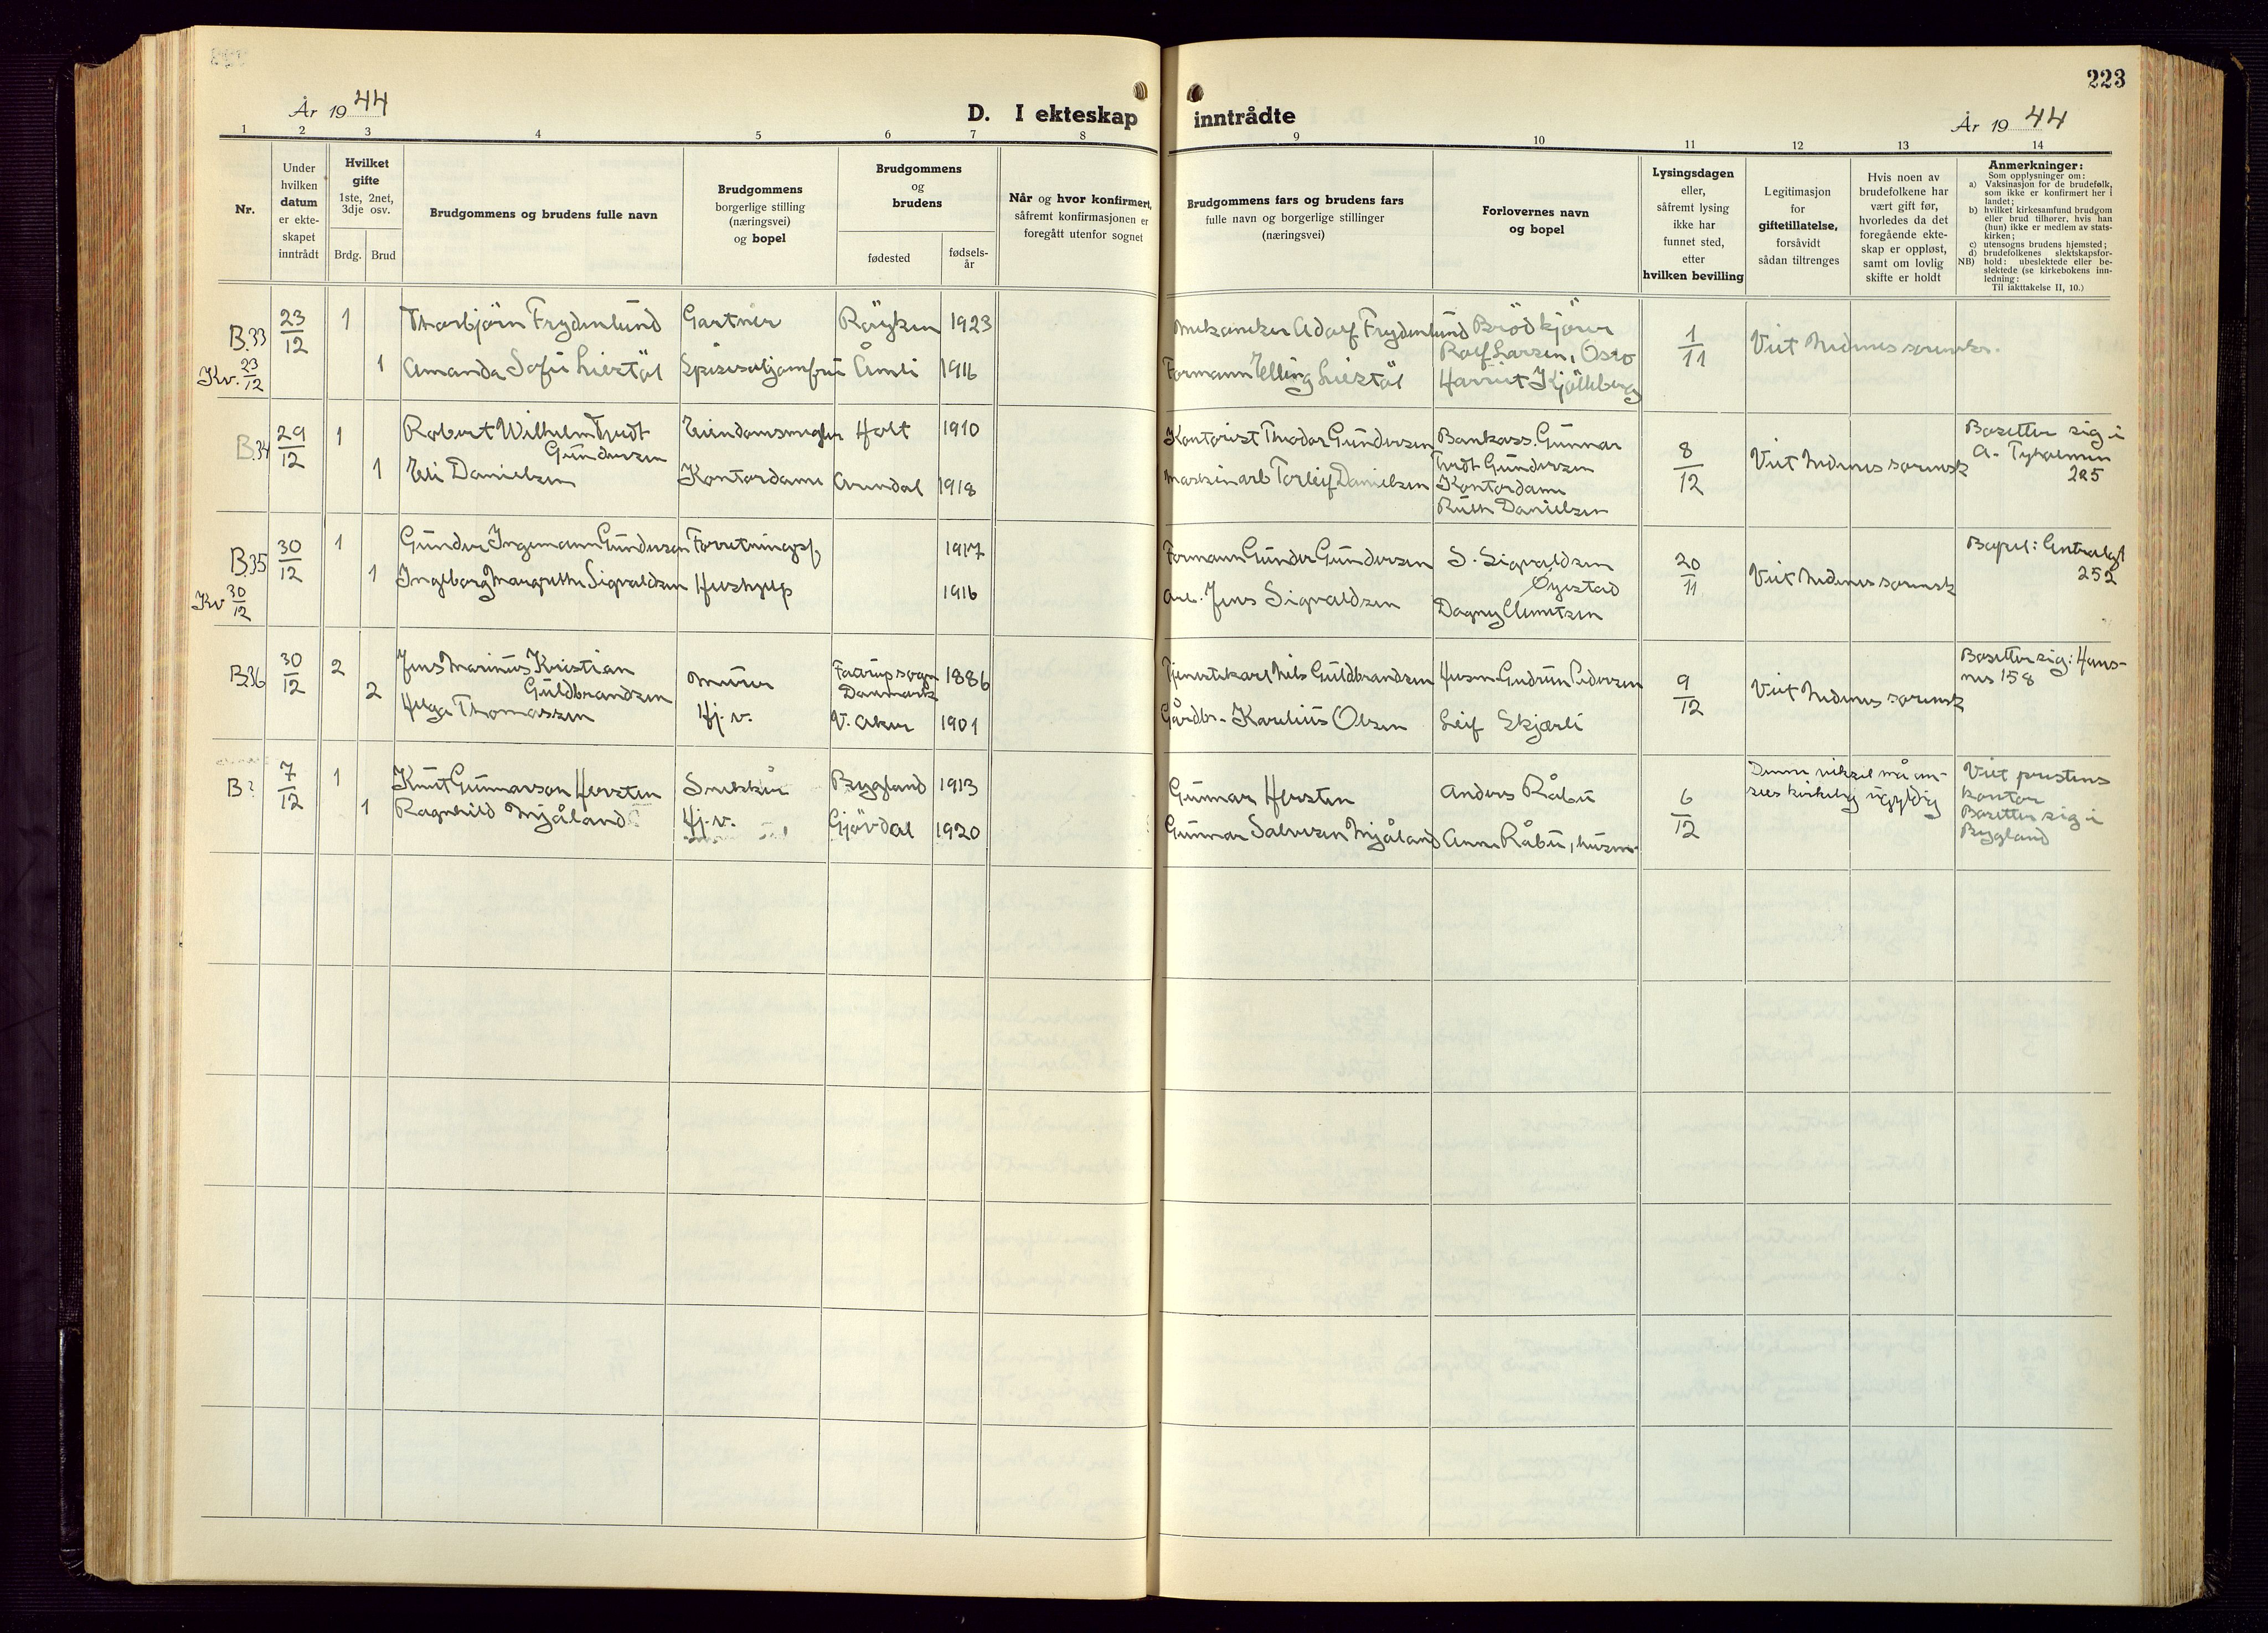 223
År 1944
D. I ekteskap inntrådte
År 1944
1 2 3 4 5 6 7 8 9 10 11 12 13 14
Nr.
Under
hvilken
datum
er ekte-
skapet
inntrådt
Hvilket
gifte
1ste, 2net,
3dje osv.
Brdg. Brud
Brudgommens og brudens fulle navn
Brudgommens
borgerlige stilling
(næringsvei)
og bopel
Brudgommens
og
brudens
fødested
fødsels-
år
Når og hvor konfirmert,
såfremt konfirmasjonen er
foregått utenfor sognet
Brudgommens fars og brudens fars
fulle navn og borgerlige stillinger
(næringsvei)
Forlovernes navn
og bopel
Lysingsdagen
eller,
såfremt lysing
ikke har
funnet sted,
etter
hvilken bevilling
Legitimasjon
for
giftetillatelse,
forsåvidt
sådan tiltrenges
Hvis noen av
brudefolkene har
vært gift før,
hvorledes da det
foregående ekte-
skap er oppløst,
samt om lovlig
skifte er holdt
Anmerkninger:
Som opplysninger om:
a) Vaksinasjon for de brudefølk,
som ikke er konfirmert her i
landet;
b) hvilket kirkesamfund brudgom
eller brud tilhører, hvis han
(hun) ikke er medlem av stats-
kirken;
c) utensogns brudens hjemsted;
d) brudefolkenes slektskapsfor-
NB) hold: ubeslektede eller be-
slektede (se kirkebokens inn-
ledning;
Til iakttakelse II, 10.)
B.33
Kv. 23/12
23/12 1 Thorbjörn Frydenlund Gartner Röyken 1923
1 Amanda Sofie Lierstöl Spisesaljomfru Åmli 1916
Mekaniker Adolf Frydenlund
Formann Elling Lierstöl
Brödkjörer
Rolf Larsen, Oslo
Harriet Kjölleberg
1/11
Viet Nedenes sorensk.
B.34
29/12 1 Robert Wilhelm Tvedt
Gundersen
Eiendomsmegler Holt 1910
1 Eli Danielsen Kontordame Arendal 1918
Kontorist Theodor Gundersen
Maskinarb Torleif Danielsen
Bankass. Gunnar
Tvedt Gundersen
Kontordame
Ruth Danielsen
8/12
Viet Nedenes sorensk
Bosetter sig i
A. Tyholmen
225
B.35
Kv 30/12
30/12 1 Gunder Ingemann Gundersen Forretningsf. 1917
1 Ingeborg Margrethe Sigvaldsen Hushjelp 1916
Formann Gunder Gundersen
Arb. Jens Sigvaldsen
S. Sigvaldsen
Öyestad
Dagny Clemetsen
20/11
Viet Nedenes sorensk
Bopel: Centralgt
252
B.36
30/12 2 Jens Marinus Kristian
Guldbrandsen
Murer
Danmark
1886
2 Helga Thomassen Hj.v. V. Aker 1901
Tjenestekarl Nils Guldbrandsen
Gårdbr. Karelius Olsen
Husm. Gudrun Pedersen
Leif Skjærli
9/12
Viet Nedenes sorensk
Bosetter sig: Havs-
nes 158
B?
7/12 1 Knut Gunnarson Hersten Snekker Bygland 1913
1 Ragnhild Mjåland Hj.v. Gjövdal 1920
Gunnar Hersten
Gunnar Salvesen Mjåland
Anders Råbu
Anne Råbu, husm.
6/12
Denne vielsel må an-
sees kirkelig ugyldig
Viet prestens
kontor
Bosetter sig i
Bygland